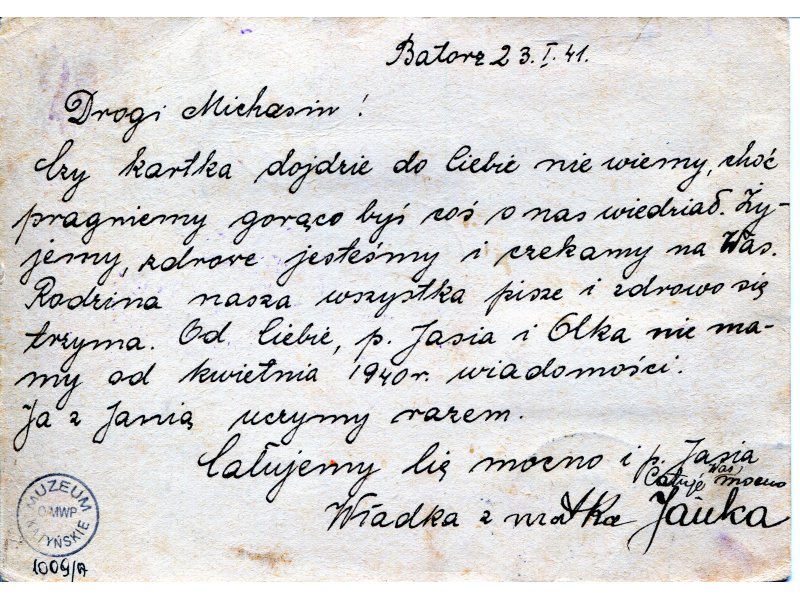 Batorz 23.I.41.
Drogi Michasiu!
Czy kartka dojdzie do Ciebie nie wiemy, choć
pragniemy gorąco byś coś o nas wiedział. Ży-
jemy, zdrowe jesteśmy i czekamy na Was.
Rodzina nasza wszystka pisze i zdrowo się
trzyma. Od Ciebie, p. Jasia i Olka nie ma-
my od kwietnia 1940r. wiadomości.
Ja z Janią uczymy razem.
Całujemy Cię mocno i p. Jasia
Całuję Was mocno
Władka z matką Jańka
MUZEUM KATYŃSKIE
O/MWP
1009/A